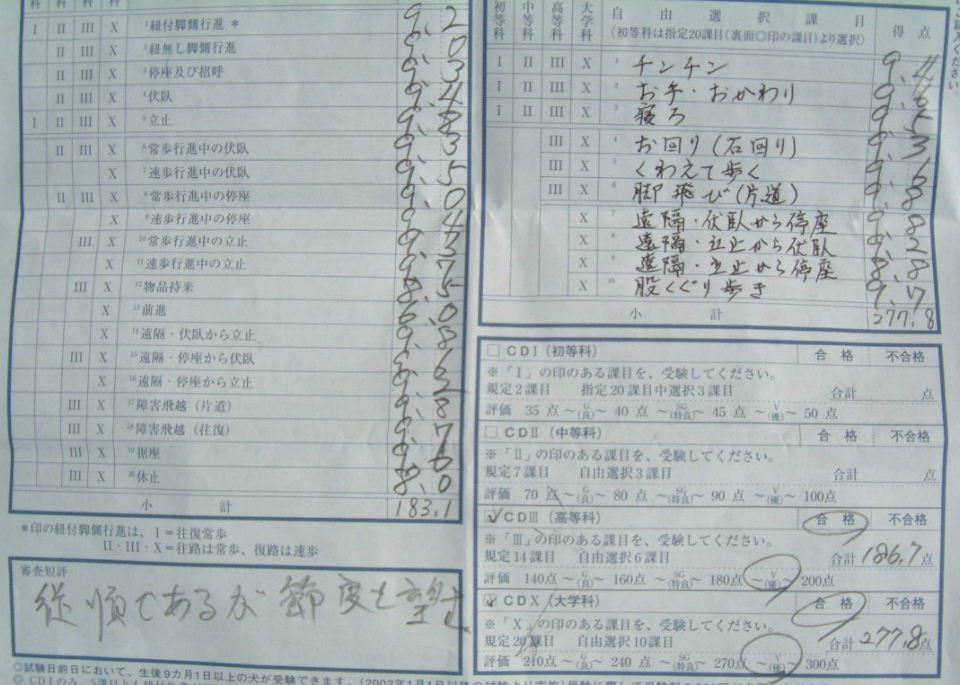 科 科 科 科
I II III X 1紐付脚側行進 * 9.2
II III X 2紐無し脚側行進 9.0
II III X 3停座及び招呼 9.3
II III X 4伏臥 9.4
I II III X 5立止 9.8
II III X 6常歩行進中の伏臥 9.3
X 7速歩行進中の伏臥 9.5
II III X 8常歩行進中の停座 9.0
X 9速歩行進中の停座 9.4
III X 10常歩行進中の立止
X 11速歩行進中の立止
III X 12物品持来
X 13前進
X 14遠隔・伏臥から立止
III X 15遠隔・停座から伏臥
X 16遠隔・停座から立止
III X 17障害飛越（片道）
III X 18障害飛越（往復）
III X 19据座
III X 20休止 8.0
小 計 183.1
*印の紐付脚側行進は、I＝往復常歩
II・III・X＝往路は常歩、復路は速歩
審査短評
従順であるが節度を望む
初等科 中等科 高等科 大学科 自由選択課目 得点
（初等科は指定20課目（裏面◎印の課目）より選択）
I II III X 1 チンチン 9.4
I II III X 2 お手・おかわり
I II III X 3 寝ろ
III X 4 お回り(右回り)
III X 5 くわえて歩く
III X 6 脚飛び(片道)
X 7 遠隔・伏臥から停座
X 8 遠隔・立止から伏臥
X 9 遠隔・立止から停座
X 10 股くぐり歩き 9.7
小 計 277.8
□ CDI（初等科） 合格 不合格
※「I」の印のある課目を、受験してください。
規定2課目 指定20課目中選択3課目 合計 点
評価 35点～G(良)～40点～SG(特良)～45点～V(優)～50点
□ CDII（中等科） 合格 不合格
※「II」の印のある課目を、受験してください。
規定7課目 自由選択3課目 合計 点
評価 70点～G(良)～80点～SG(特良)～90点～V(優)～100点
☑ CDIII（高等科） 合格 不合格
※「III」の印のある課目を、受験してください。
規定14課目 自由選択6課目 合計186.7点
評価 140点～G(良)～160点～SG(特良)～180点～V(優)～200点
☑ CDX（大学科） 合格 不合格
※「X」の印のある課目を、受験してください。
規定20課目 自由選択10課目 合計277.8点
評価 210点～G(良)～240点～SG(特良)～270点～V(優)～300点
◎試験日前日において、生後9カ月1日以上の犬が受験できます。